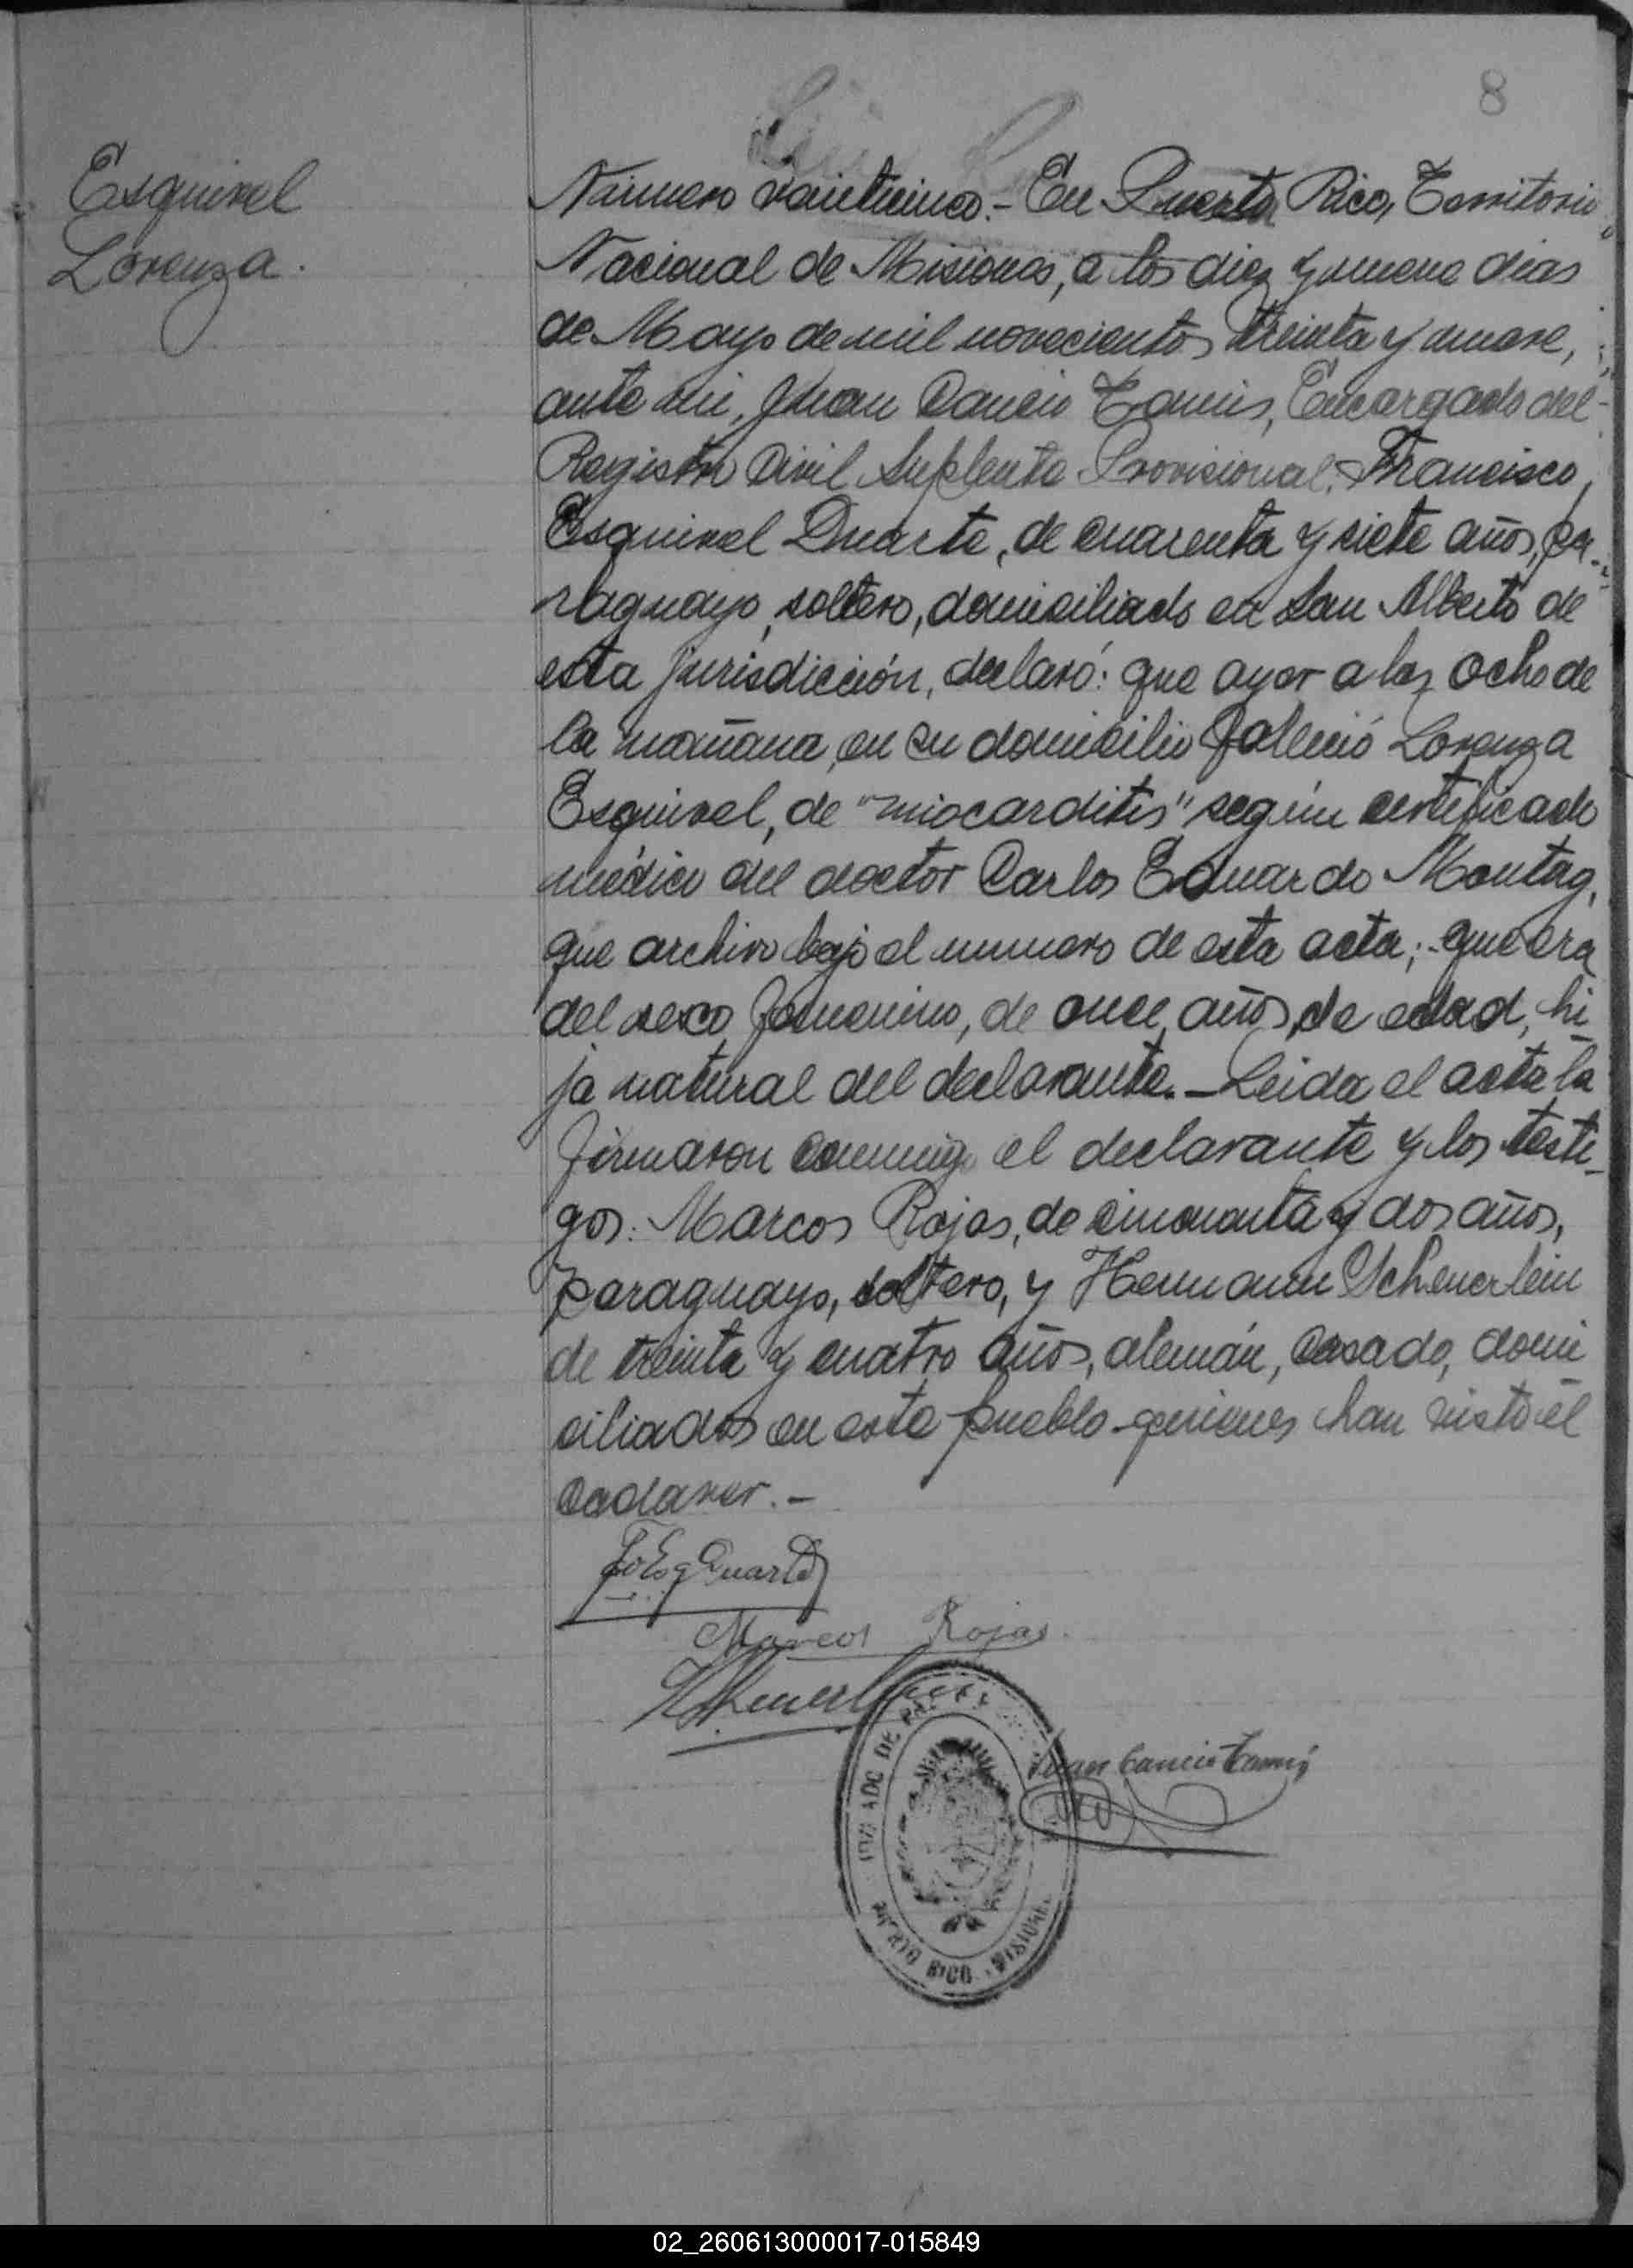 8
Esquivel
Lorenza.
Número veinticinco.- En Puerto Rico, Territorio
Nacional de Misiones, a los diez y nueve dias
de Mayo de mil novecientos treinta y nueve,
ante mi, Juan Cancio Tamis, Encargado del
Registro Civil Suplente Provisional, Francisco
Esquivel Duarte, de cuarenta y siete años, pa-
raguayo, soltero, domiciliado en San Alberto de
esta jurisdicción, declaró: que ayer a las ocho de
la mañana, en su domicilio falleció Lorenza
Esquivel, de "miocarditis" según certificado
médico del doctor Carlos Eduardo Montag,
que archivo bajo el numero de esta acta; que era
del sexo femenino, de once años de edad, hi
ja natural del declarante.- Leida el acta la
firmaron conmigo el declarante y los testi-
gos: Marcos Rojas, de cincuenta y dos años,
paraguayo, soltero, y Hermann Scheuerlein
de treinta y cuatro años, alemán, casado, domi
ciliados en este pueblo quienes han visto el
cadaver.-
Fco Esq Duarte
Marcos Rojas.
Juan Cancio Tamis
PUERTO RICO - MISIONES
02_260613000017-015849